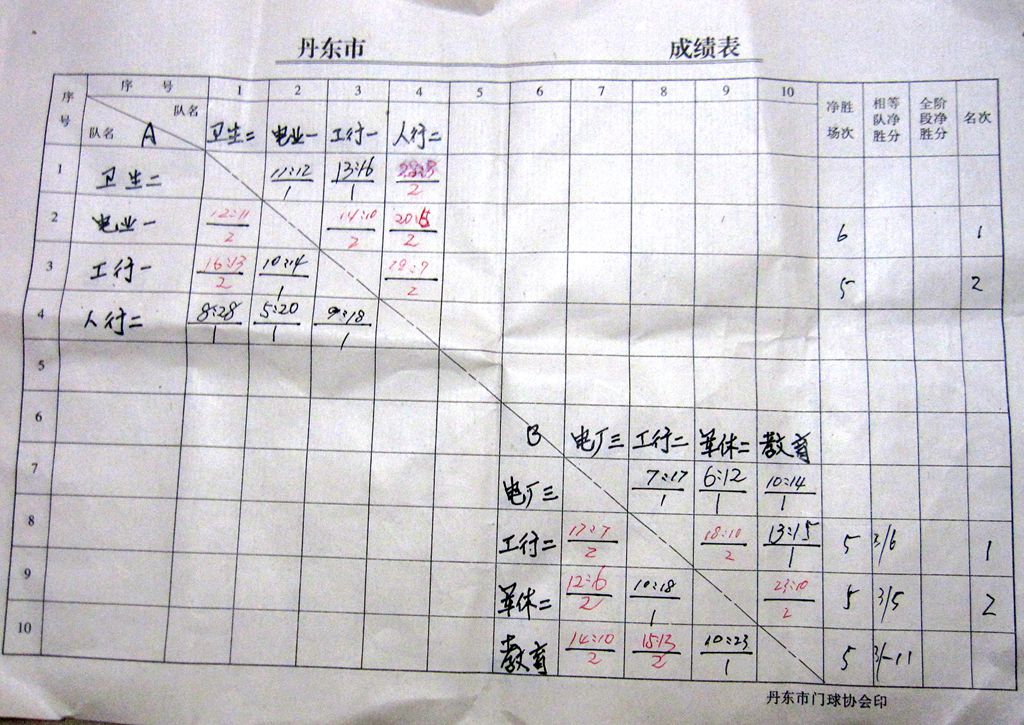 丹东市 成绩表
序号 序 号 队名 队名 A 1 2 3 4 5 6 7 8 9 10 净胜场次 相等队净胜分 全阶段净胜分 名次
卫生二 电业一 工行一 人行二
1 卫生二 11:12/1 13:16/1 2
2 电业一 12:11/2 14:10/2 20:5/2 6 1
3 工行一 16:13/2 10:14/1 18:9/2 5 2
4 人行二 8:28/1 5:20/1 9:18/1
5
6 B 电厂三 工行二 军休二 教育
7 电厂三 7:17/1 6:12/1 10:14/1
8 工行二 17:7/2 18:10/2 13:15/1 5 3/6 1
9 军休二 12:6/2 10:18/1 23:10/2 5 3/5 2
10 教育 14:10/2 15:13/2 10:23/1 5 3/-11
丹东市门球协会印